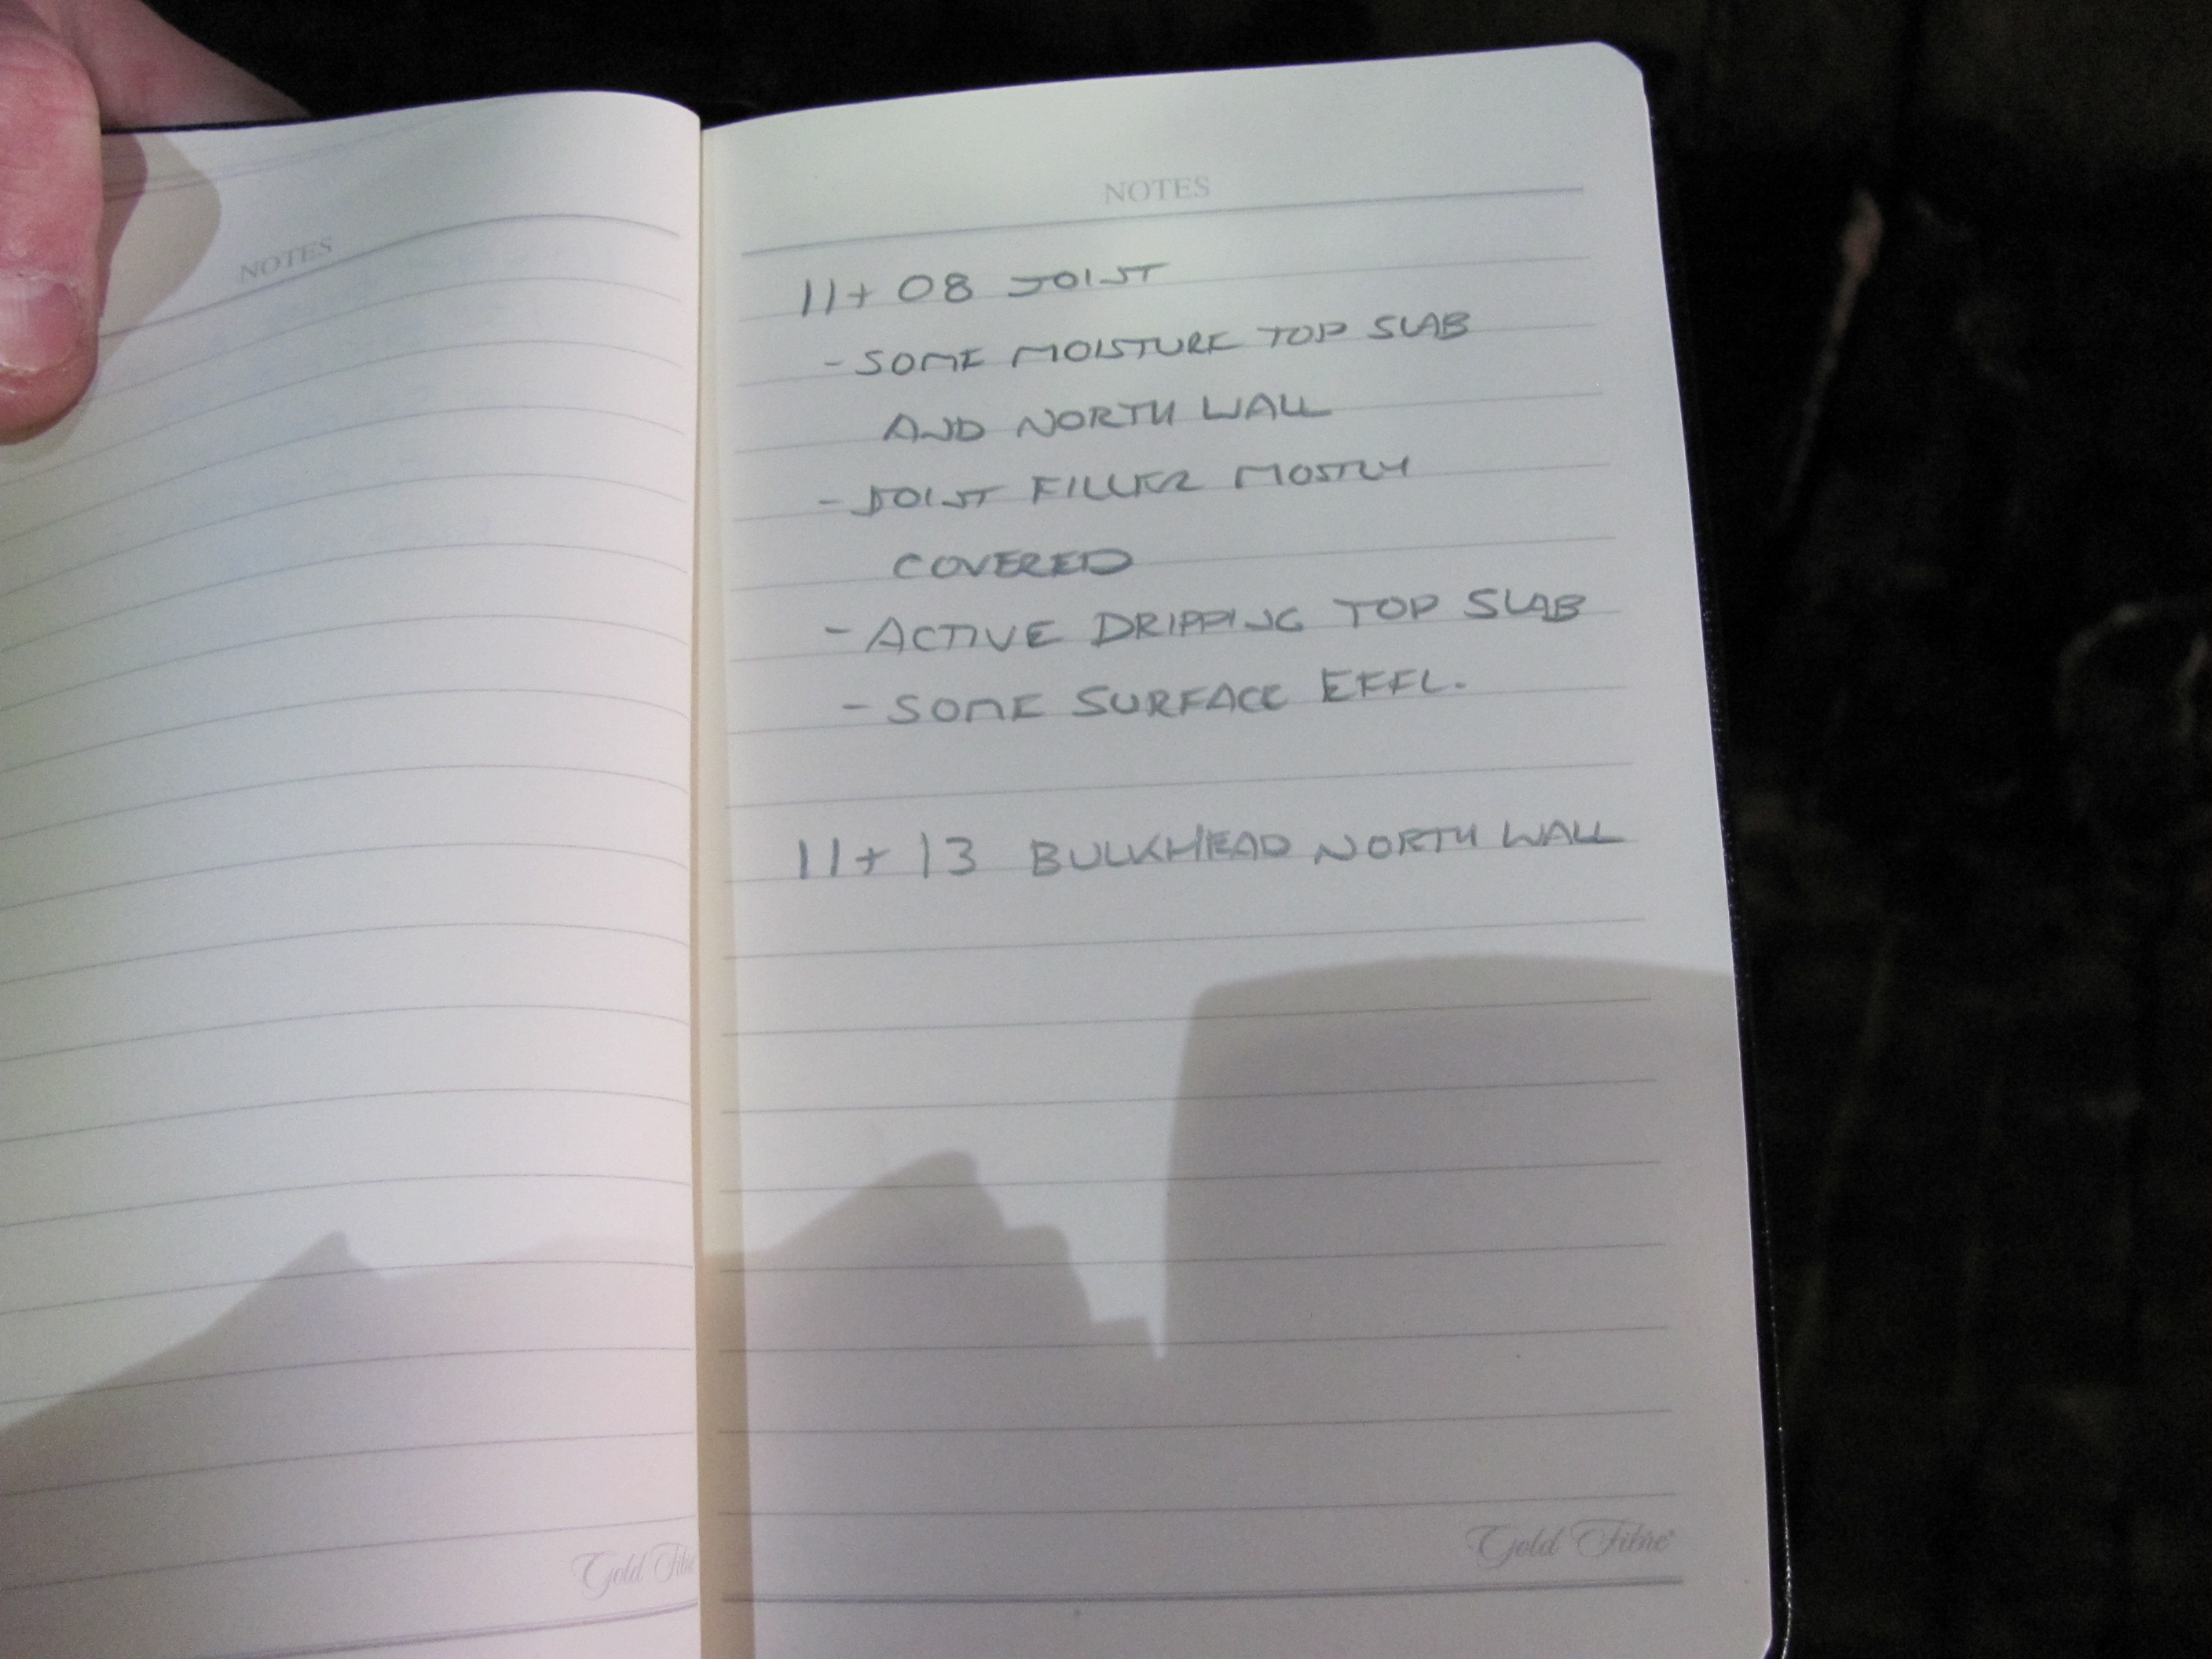 NOTES
NOTES
11+08 JOIST
- SOME MOISTURE TOP SLAB
AND NORTH WALL
- JOIST FILLER MOSTLY
COVERED
- ACTIVE DRIPPING TOP SLAB
- SOME SURFACE EFFL.
11+13 BULKHEAD NORTH WALL
Gold Fibre
Gold Fibre®